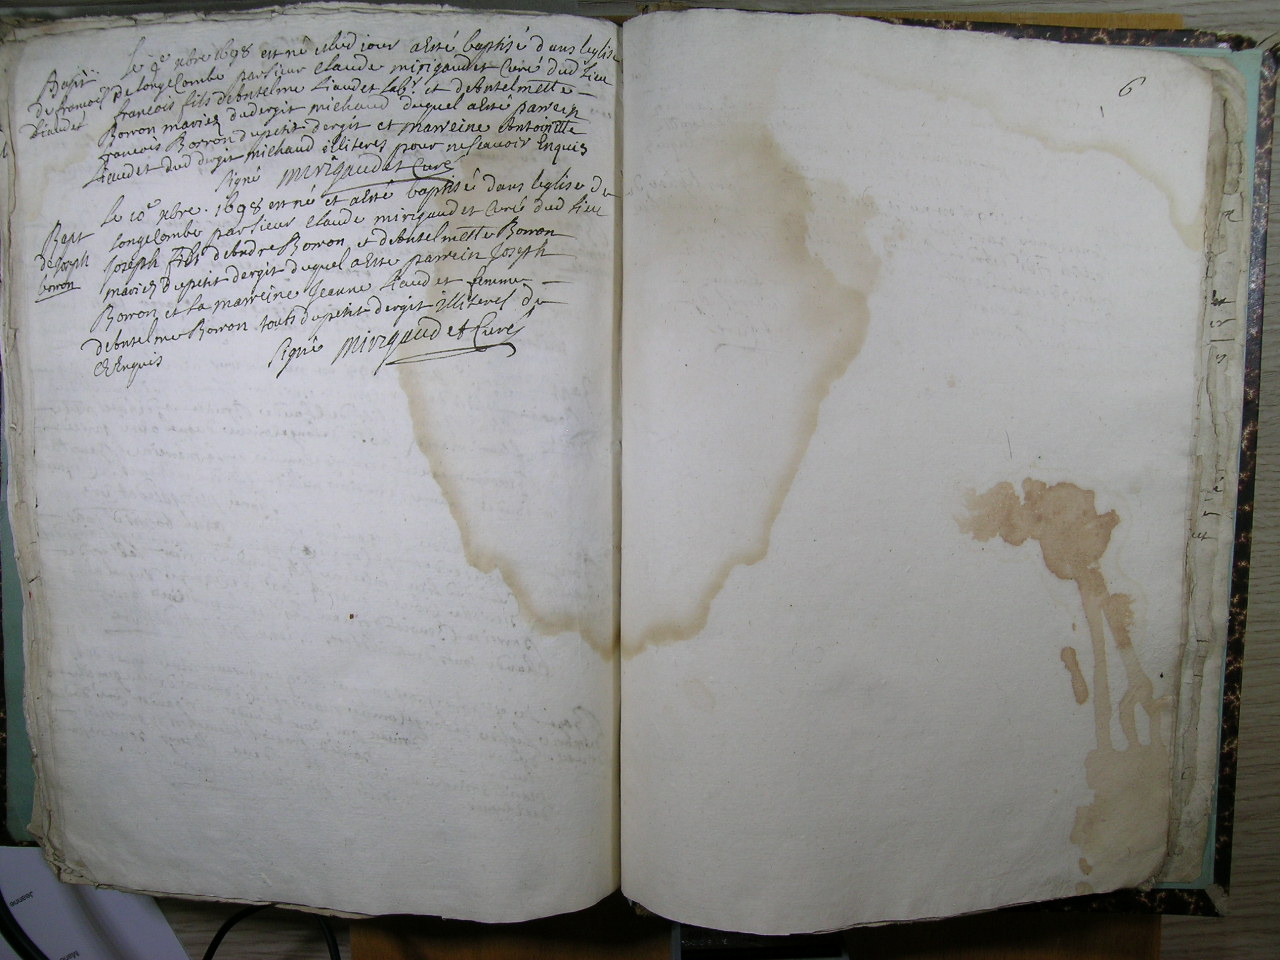 Bapt
de francois
Liaudet
Le 9e xbre 1698 est né et led jour a esté baptisé dans leglise
De longecombe par sieur Claude mirigaudet Curé dud Lieu
francois fils danteLme Liaudet Labr et danteLmette
Borron mariez dudergit michaud duquel a esté parrein
francois Borron du petit dergit et marreine Antoinette
Liaudet dud dergit michaud illiteres pour ne scavoir Enquis
signé Mirigaudet Curé
Bapt
de Joseph
borron
Le 10e xbre 1698 est né et a esté baptisé dans leglise de
longecombe par sieur Claude mirigaudet Curé dud Lieu
Joseph fils dandre Borron et danteLmette Borron
mariez du petit dergit duquel a esté parrein Joseph
Borron et La marreine Jeanne Liaudet femme
danteLme Borron touts du petit dergit illiteres de
Enquis
signé Mirigaudet Curé
6
Jeanne